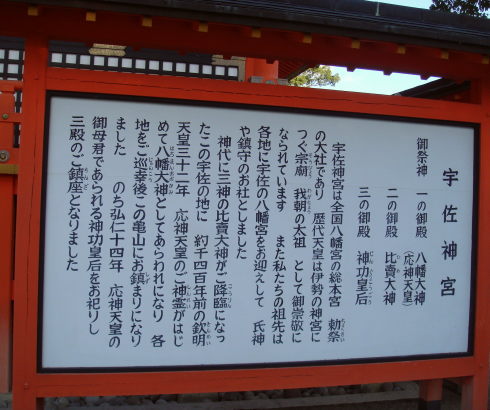 宇佐神宮
御祭神 一の御殿 八幡大神
(応神天皇)
二の御殿 比賣大神
三の御殿 神功皇后
宇佐神宮は全国八幡宮の総本宮 勅祭
の大社であり 歴代天皇は伊勢の神宮に
つぐ宗廟 我朝の太祖として御崇敬に
なられています また私たちの祖先は
各地に宇佐の八幡宮をお迎えして 氏神
や鎮守のお社としました
神代に三神の比賣大神がご降臨になっ
たこの宇佐の地に 約千四百年前の欽明
天皇三十二年 応神天皇のご神霊がはじ
めて八幡大神としてあらわれになり 各
地をご巡幸後この亀山にお鎮まりになり
ました のち弘仁十四年 応神天皇の
御母君であられる神功皇后をお祀りし
三殿のご鎮座となりました